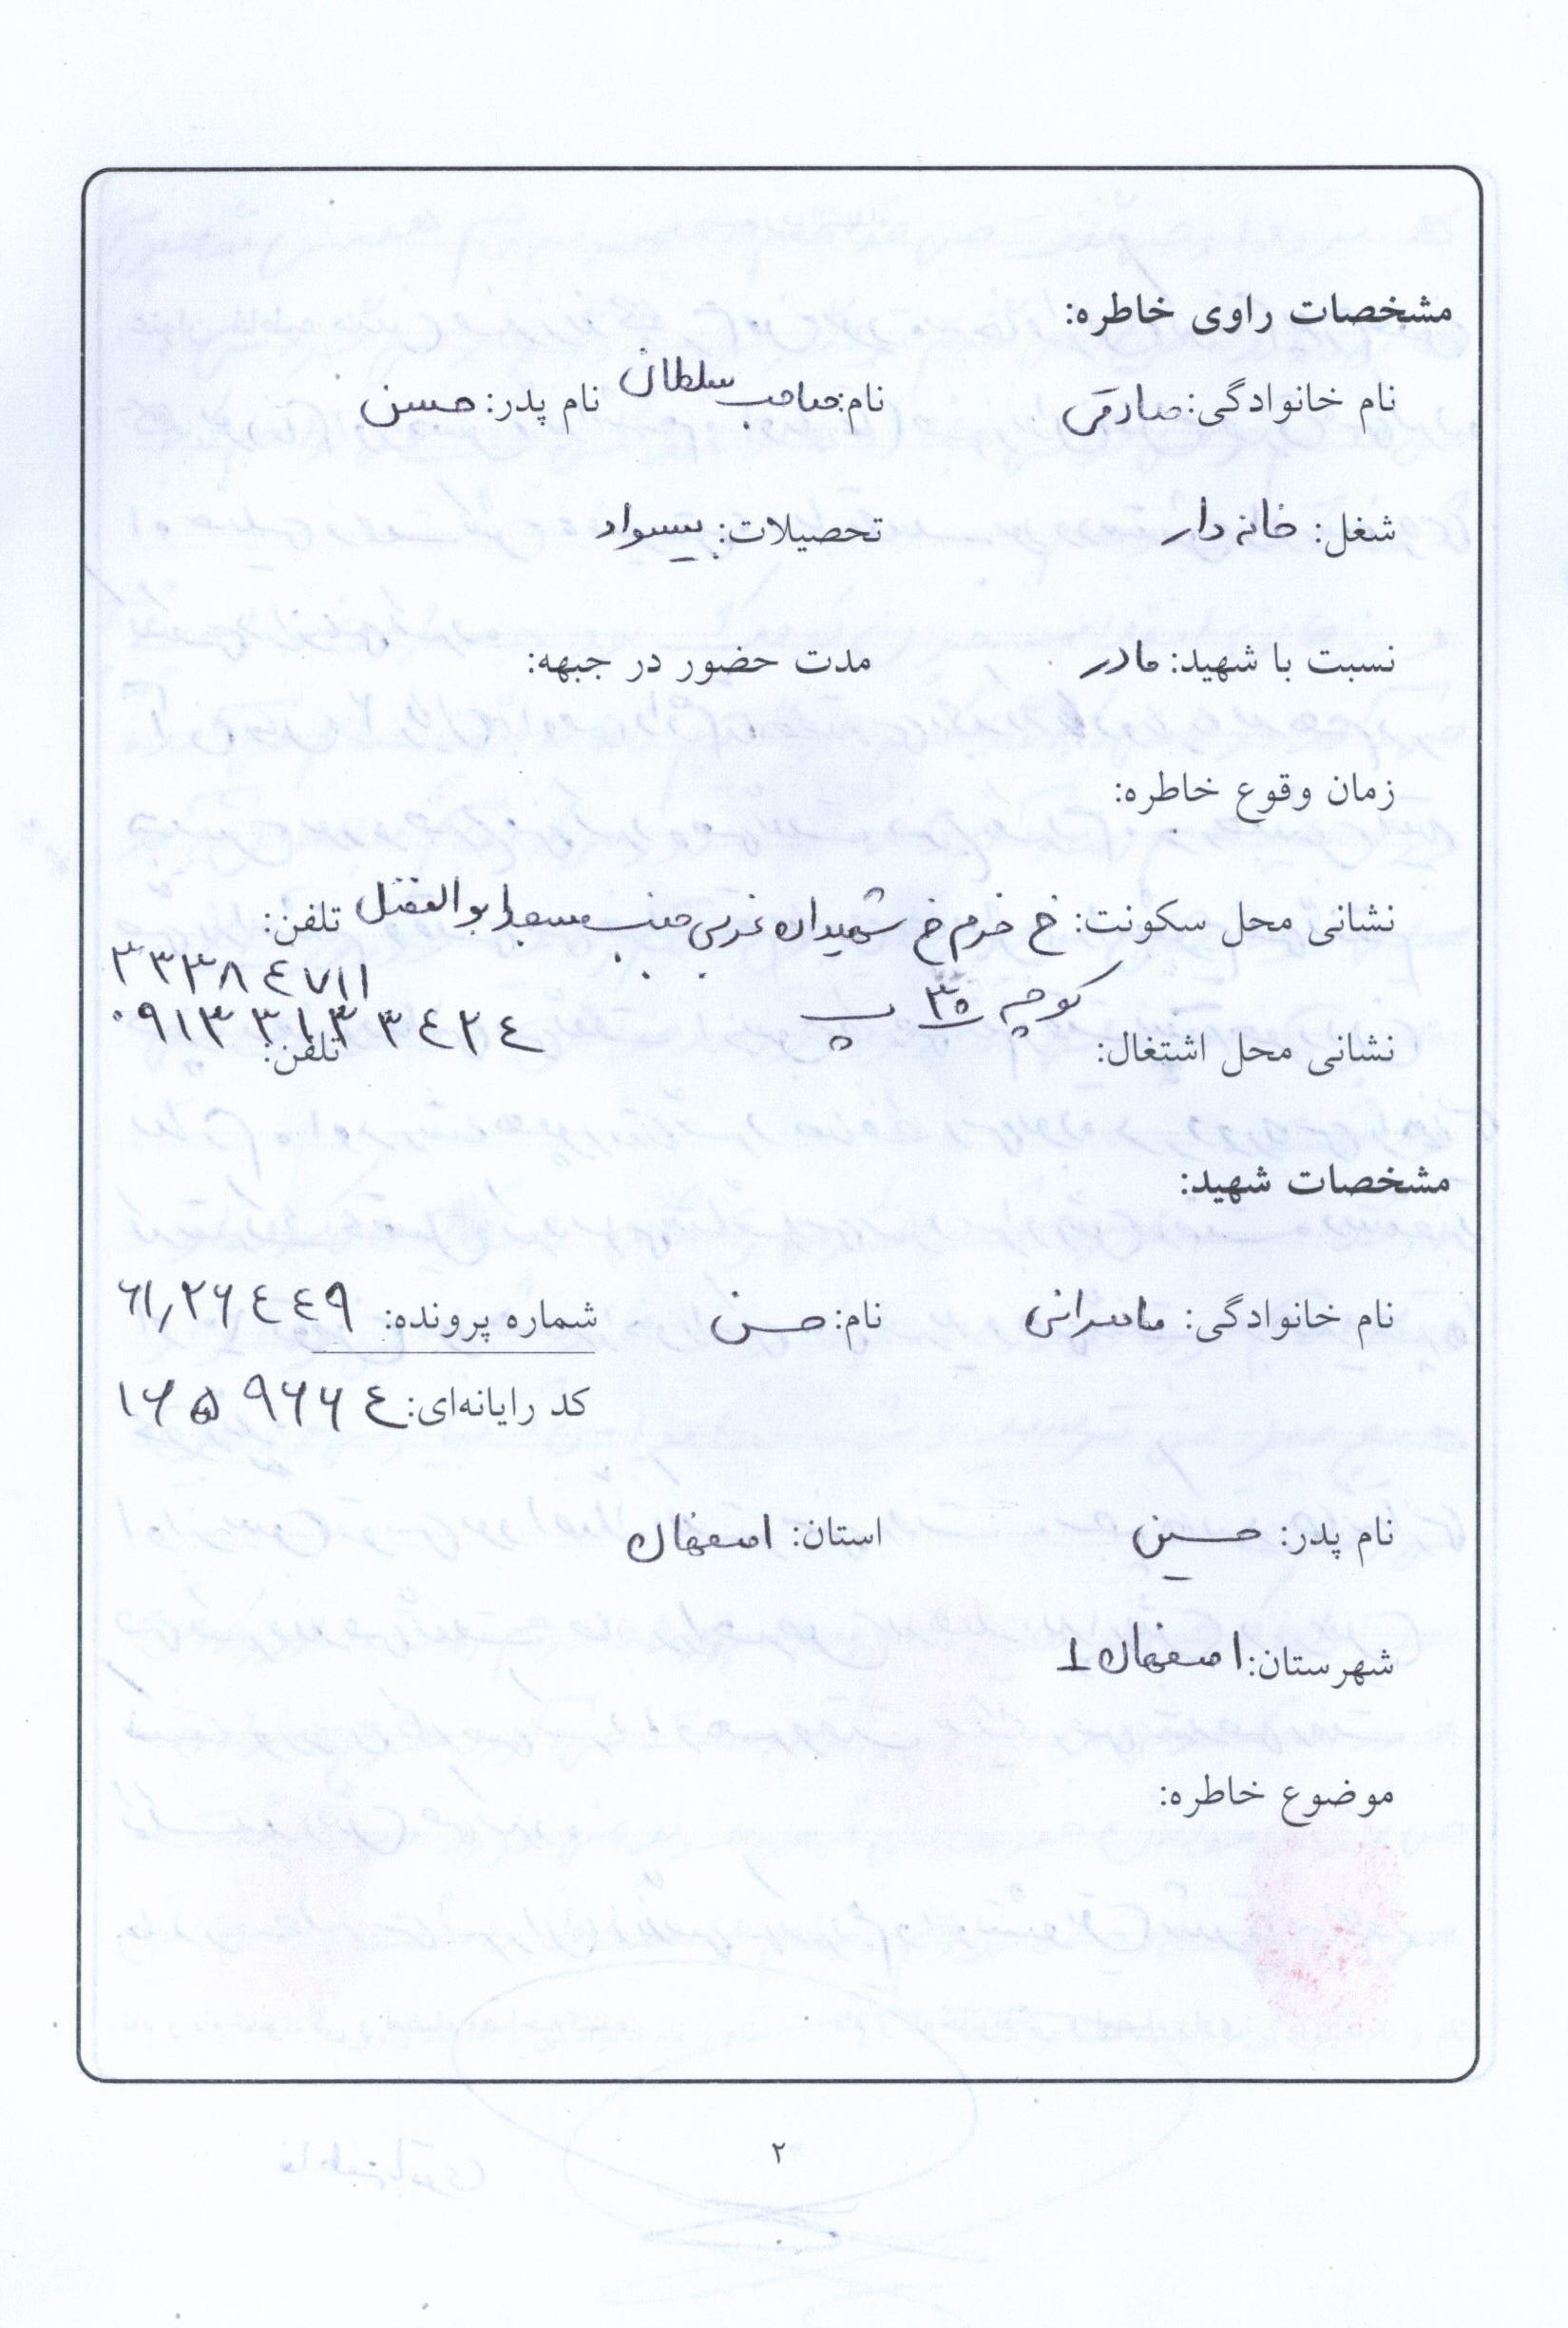 مشخصات راوی خاطره:
نام خانوادگی: صادقی نام: صاحب سلطان نام پدر: حسن
شغل: خانه دار تحصیلات: بیسواد
نسبت با شهید: مادر مدت حضور در جبهه:
زمان وقوع خاطره:
نشانی محل سکونت: خ خرم خ شهیدان غربی جنب مسجد ابوالفضل تلفن:
۳۳۳۸۴۷۱۱
کوچه ۳۵ پ
۰۹۱۳۳۱۳۳۴۲۴
نشانی محل اشتغال: تلفن:
مشخصات شهید:
نام خانوادگی: نام: حسن شماره پرونده: ۶۱٫۲۶۴۴۹
کد رایانه‌ای: ۱۶۵۹۶۶۴
نام پدر: حسین استان: اصفهان
شهرستان: اصفهان ۱
موضوع خاطره:
۲